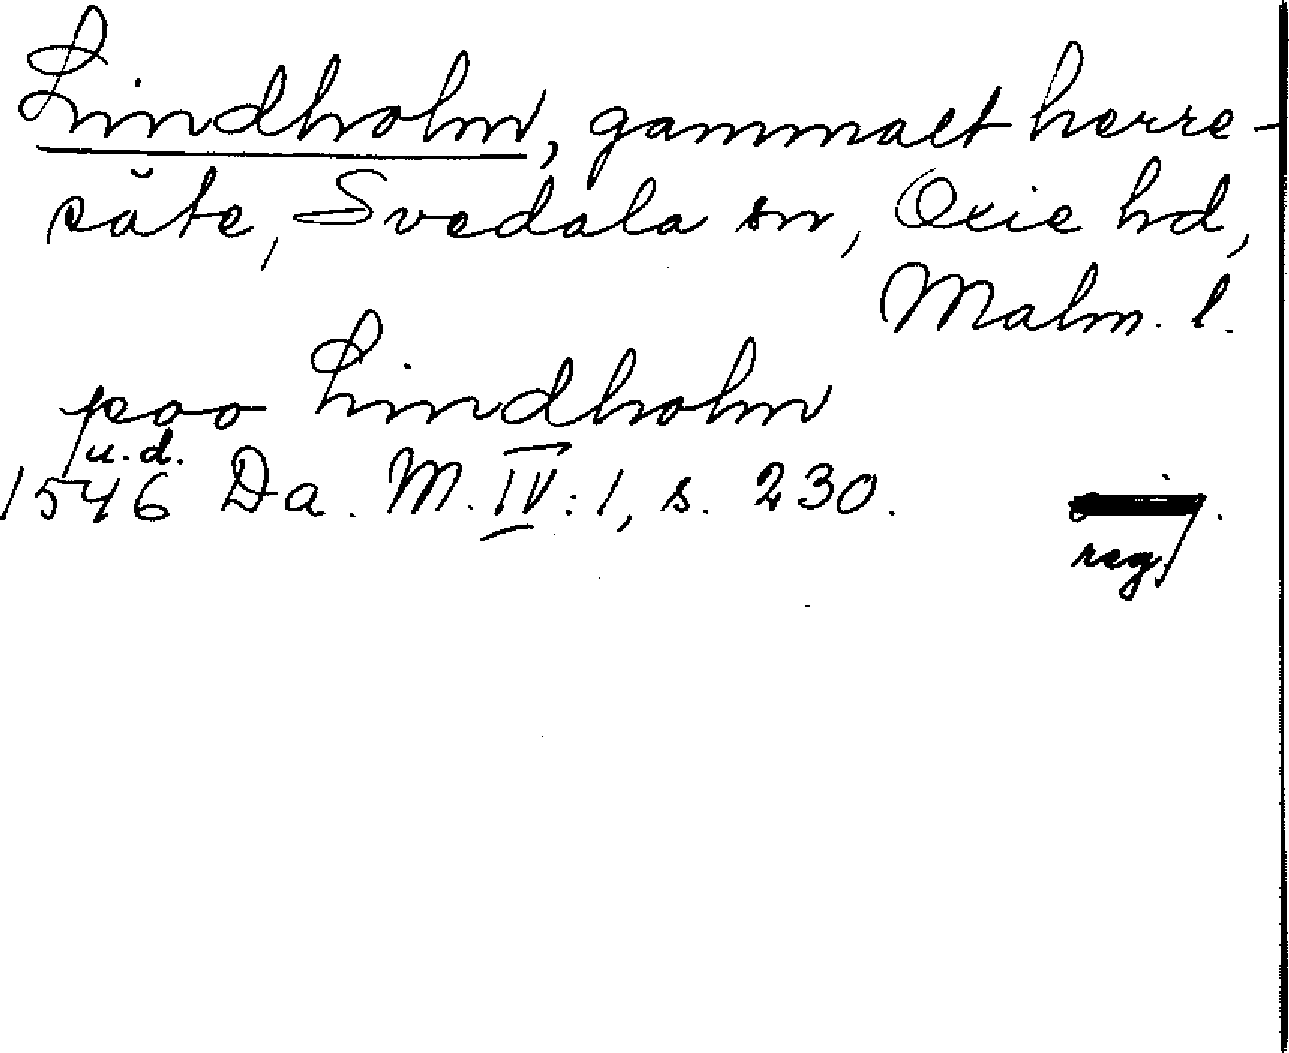 Lindholm, gammalt herre-
säte, Svedala sn, Oxie hd,
Malm. l.
poo Lindholm
u.d.
1546 Da. M. IV: 1, s. 230.
reg.